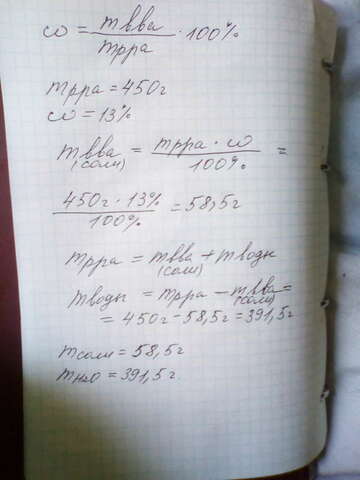 ω = mвва / mрра · 100%
mрра = 450г
ω = 13%
mвва (соли) = mрра · ω / 100% =
450г · 13% / 100% = 58,5г
mрра = mвва (соли) + mводы
mводы = mрра – mвва (соли) =
= 450г – 58,5г = 391,5г
mсоли = 58,5г
mH2O = 391,5г.